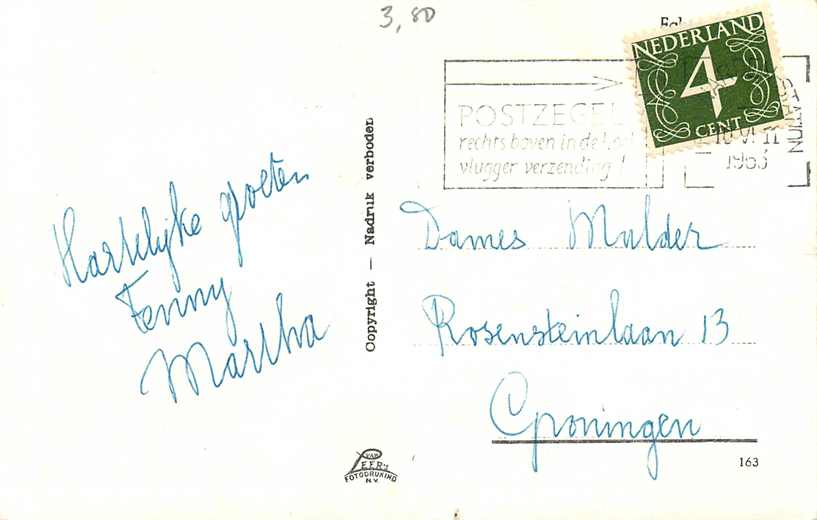 3,80
NEDERLAND
4
CENT
POSTZEGEL
rechts boven in de
vlugger verzending!
STATION
1963
Hartelijke groeten
Fenny
Martha
Copyright — Nadruk verboden
Dames Mulder
Rosensteinlaan 13
Groningen
VAN
LEER'S
FOTODRUKIND
N.V.
163